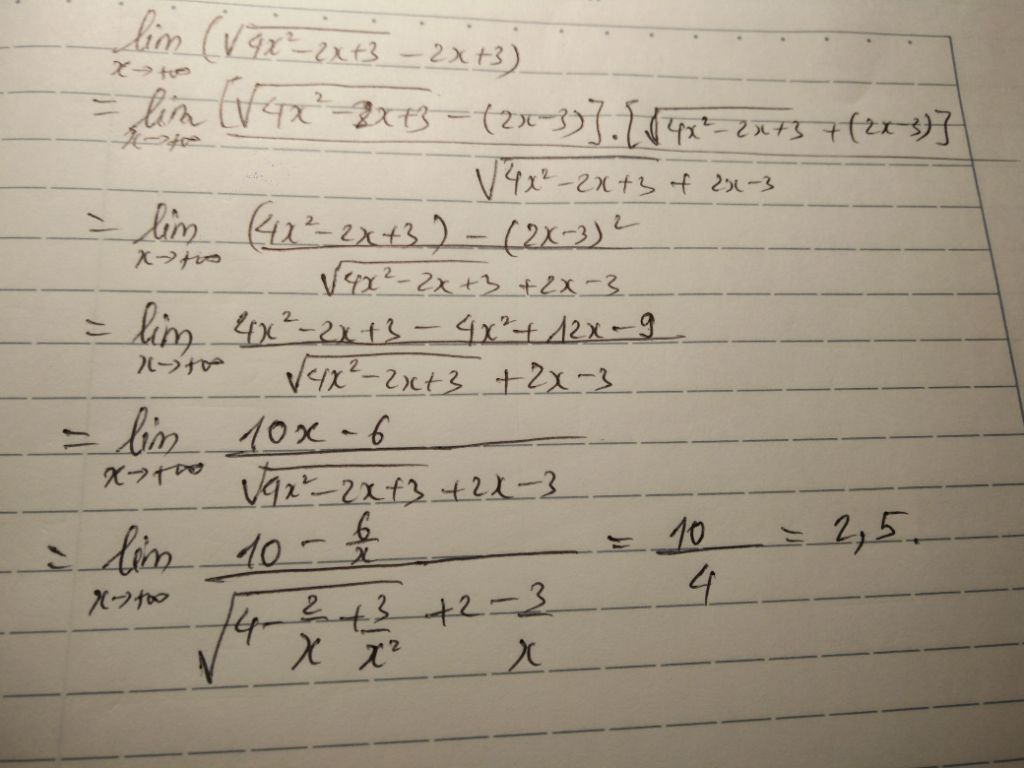 lim (√4x²-2x+3 - 2x+3)
x→+∞
= lim [√4x²-2x+3 - (2x-3)].[√4x²-2x+3 + (2x-3)]
x→+∞
√4x²-2x+3 + 2x-3
= lim (4x²-2x+3) - (2x-3)²
x→+∞
√4x²-2x+3 +2x-3
= lim 4x²-2x+3 - 4x²+12x-9
x→+∞
√4x²-2x+3 +2x-3
= lim 10x-6
x→+∞
√4x²-2x+3 +2x-3
= lim 10 - 6/x = 10/4 = 2,5.
x→+∞
√4-2/x+3/x² +2-3/x